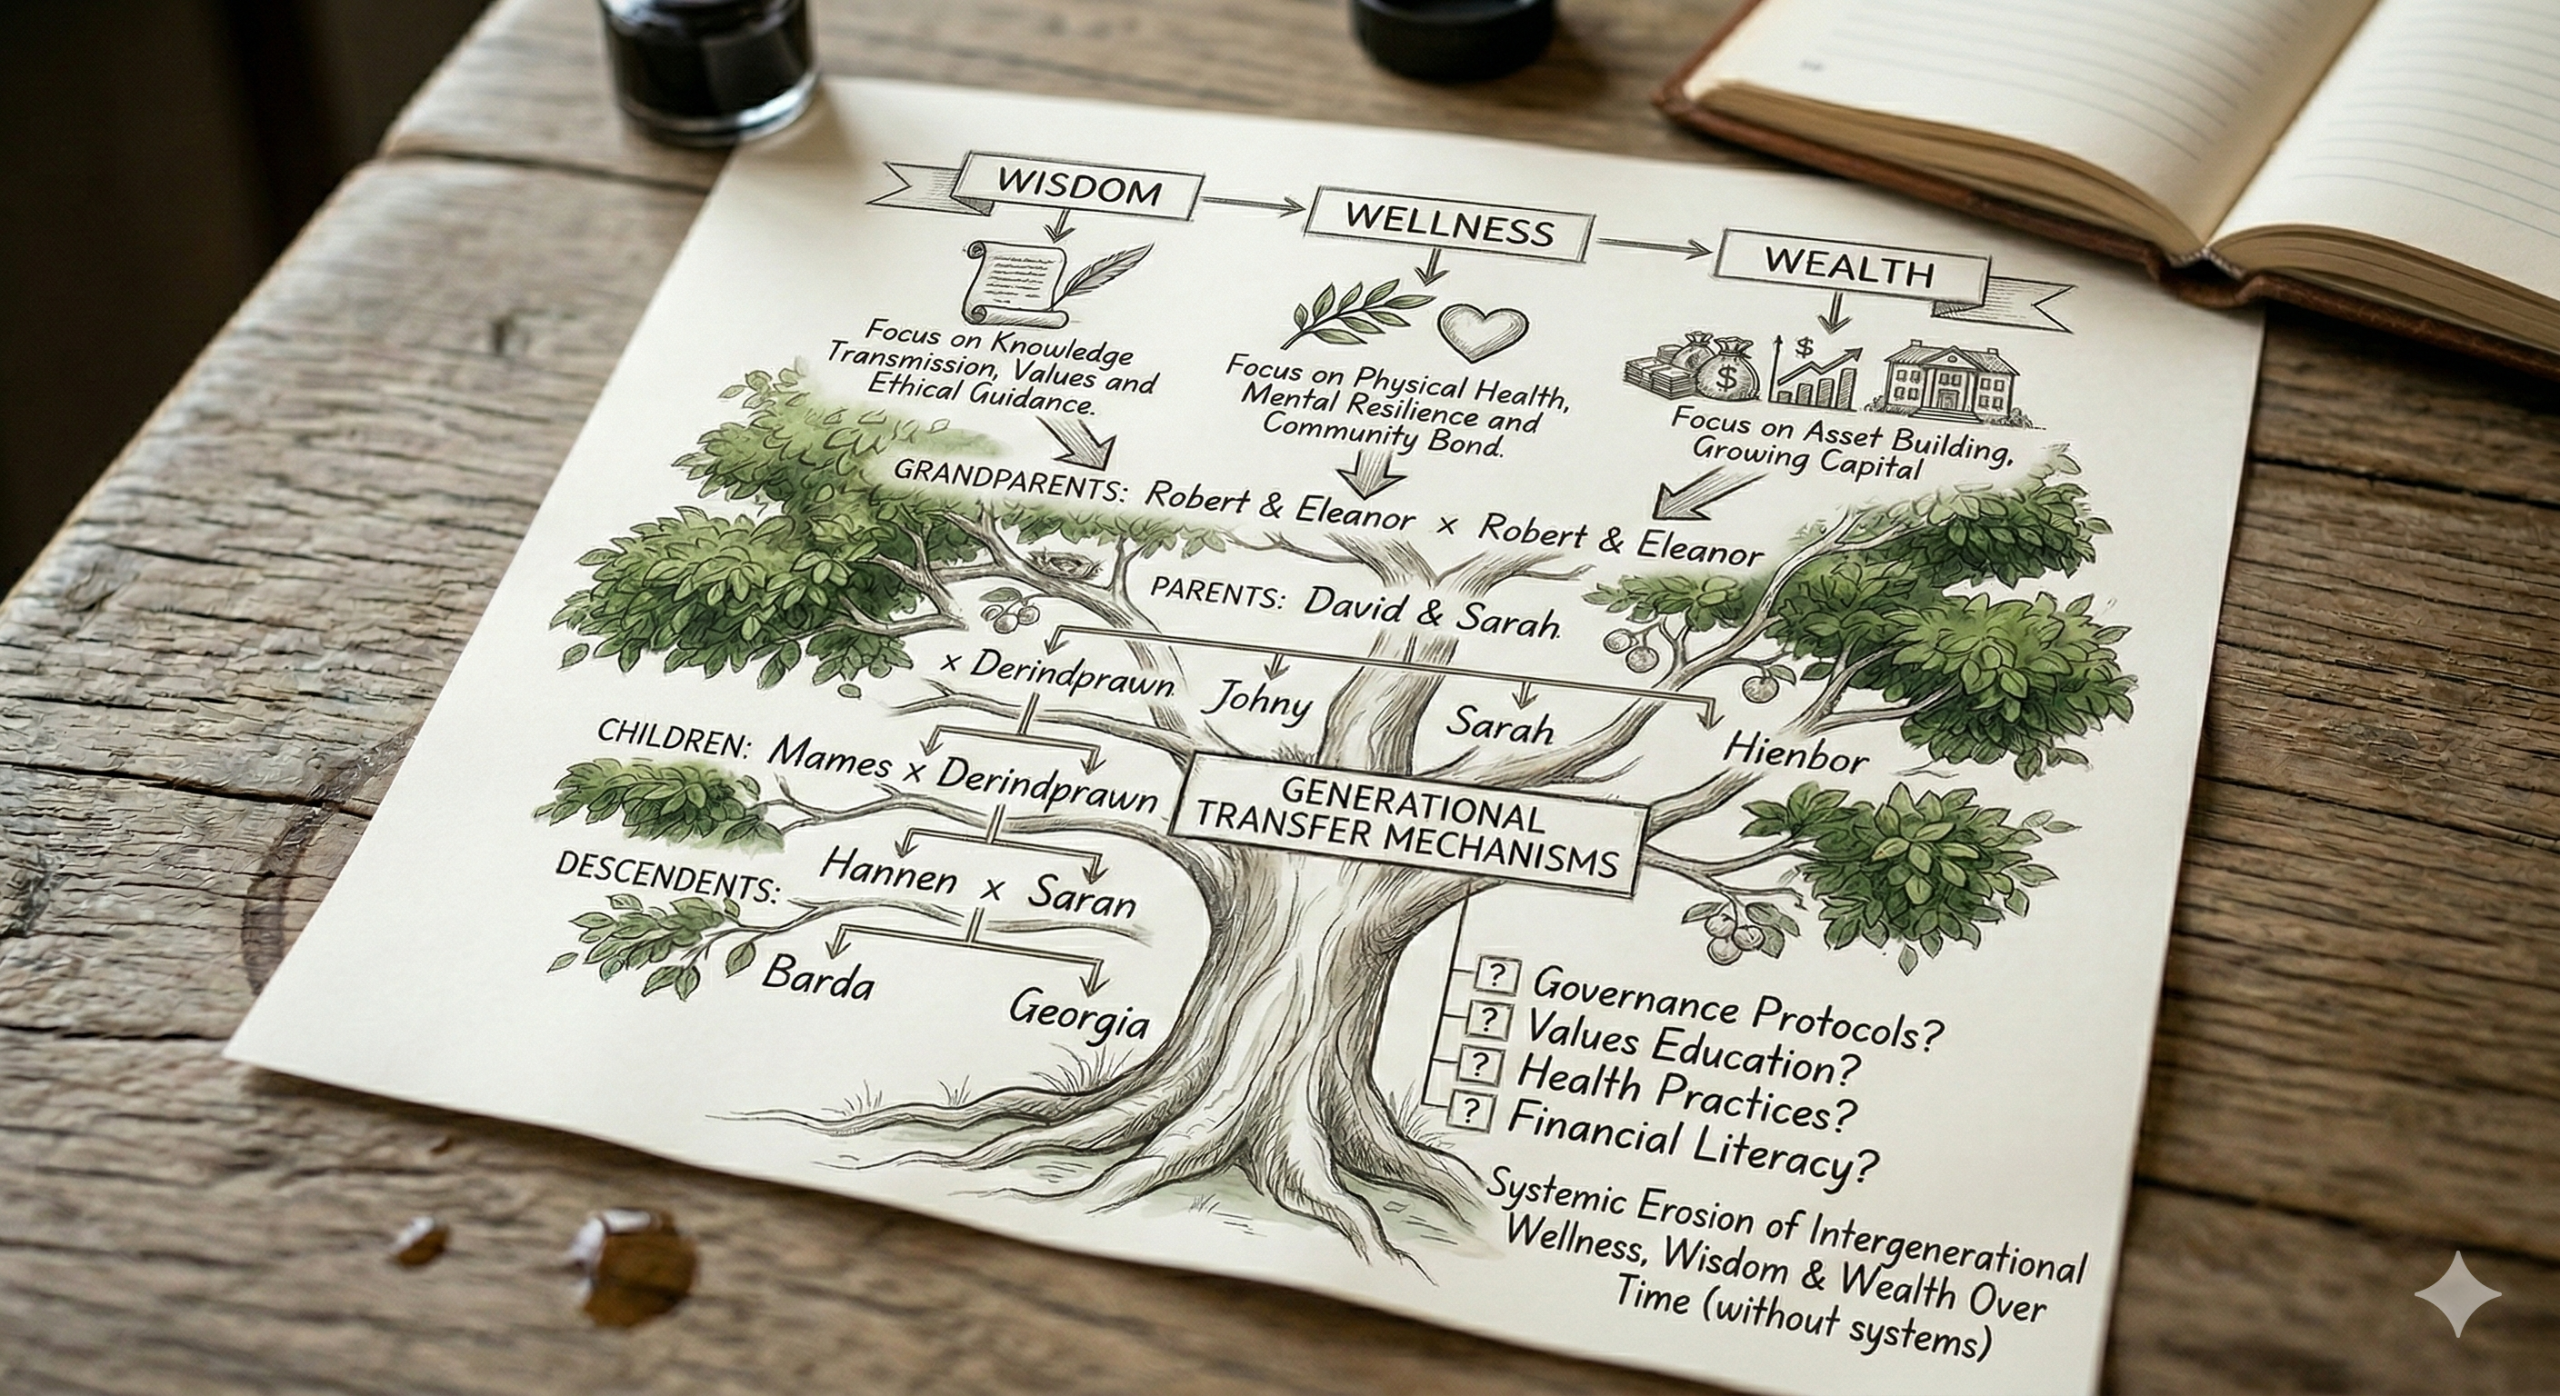 WISDOM
WELLNESS
WEALTH
$
$
Focus on Knowledge
Transmission, Values and
Ethical Guidance.
Focus on Physical Health,
Mental Resilience and
Community Bond.
Focus on Asset Building,
Growing Capital
GRANDPARENTS: Robert & Eleanor × Robert & Eleanor
PARENTS: David & Sarah
× Derindprawn
Johny
Sarah
Hienbor
CHILDREN: Mames × Derindprawn
DESCENDENTS: Hannen × Saran
Barda
Georgia
GENERATIONAL
TRANSFER MECHANISMS
? Governance Protocols?
? Values Education?
? Health Practices?
? Financial Literacy?
Systemic Erosion of Intergenerational
Wellness, Wisdom & Wealth Over
Time (without systems)